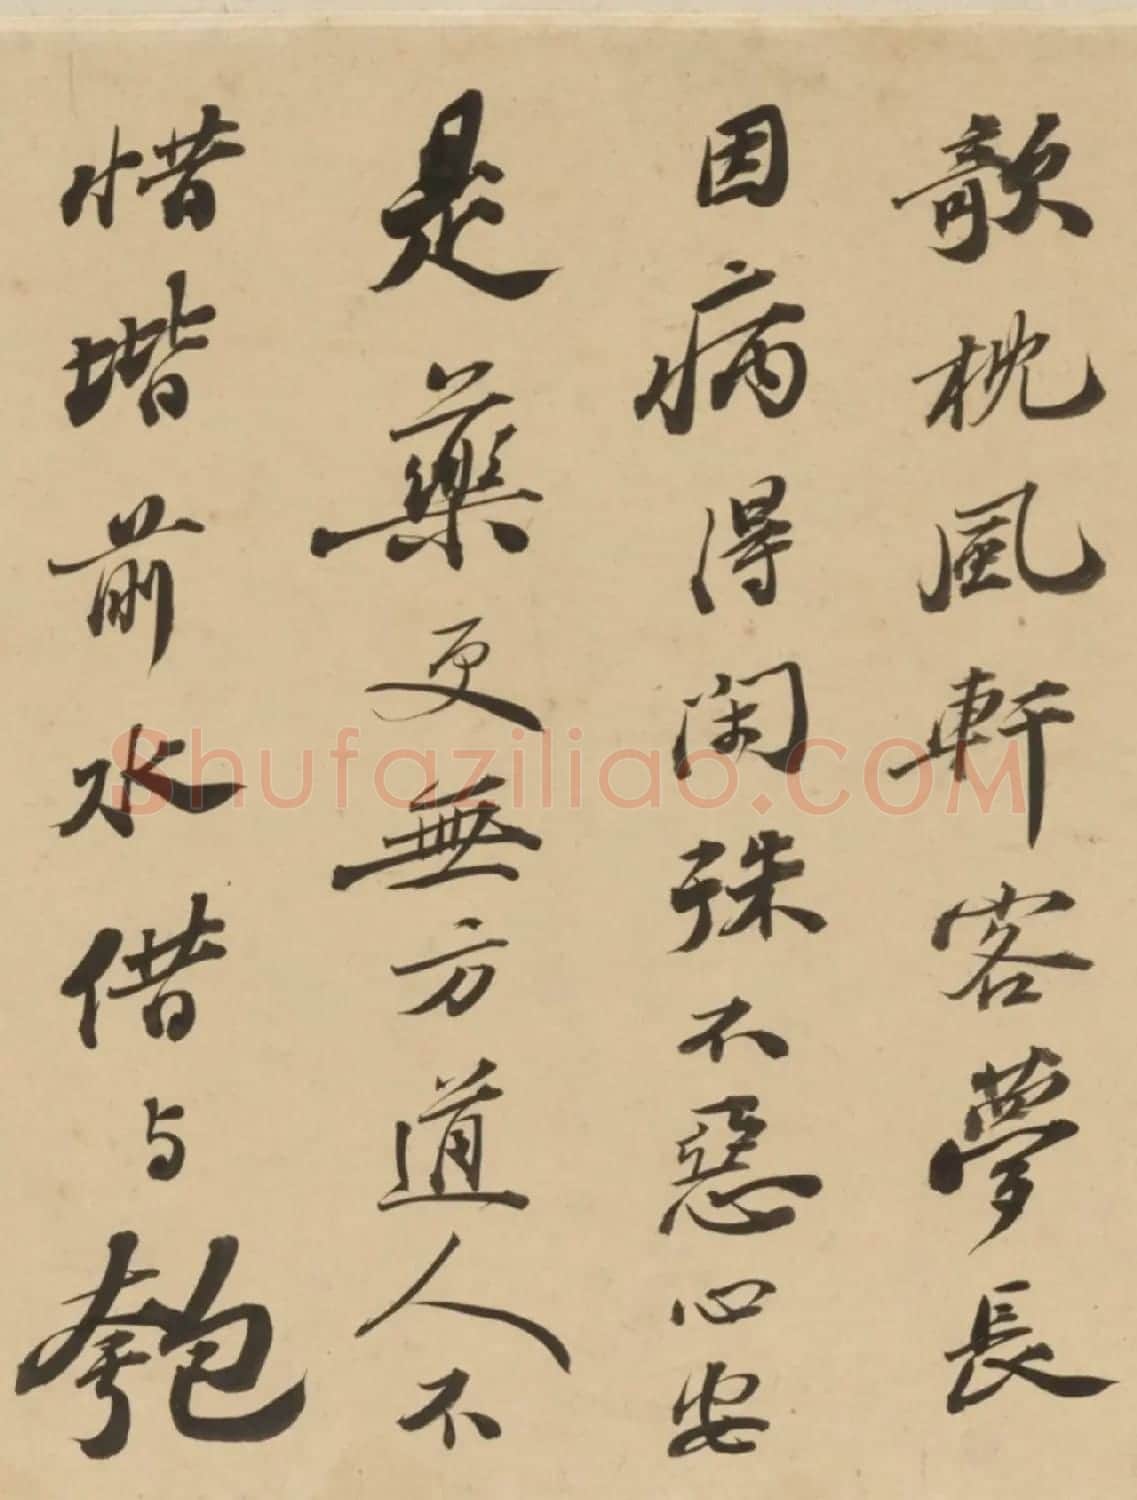 欹枕風軒客夢長
因病得閑殊不惡心安
是藥更無方道人不
惜堦前水借与匏
Shufaziliao.COM